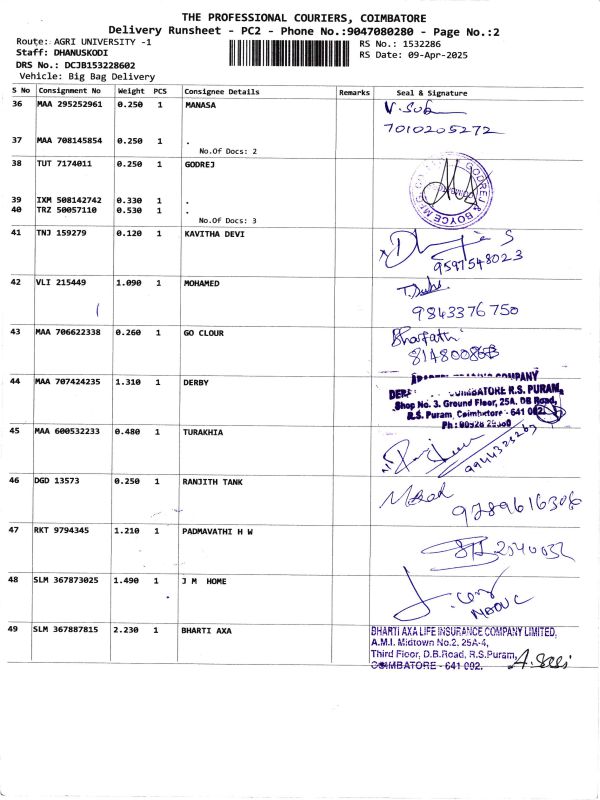 THE PROFESSIONAL COURIERS, COIMBATORE
Delivery Runsheet - PC2 - Phone No.:9047080280 - Page No.:2
Route: AGRI UNIVERSITY -1
RS No.: 1532286
Staff: DHANUSKODI
RS Date: 09-Apr-2025
DRS No.: DCJB153228602
Vehicle: Big Bag Delivery
S No Consignment No Weight PCS Consignee Details Remarks Seal & Signature
36 MAA 295252961 0.250 1 MANASA
7010205272
37 MAA 708145854 0.250 1 .
No.Of Docs: 2
38 TUT 7174011 0.250 1 GODREJ
GODREJ & BOYCE MFG. CO.
39 IXM 508142742 0.330 1 .
40 TRZ 50057110 0.530 1 .
No.Of Docs: 3
41 TNJ 159279 0.120 1 KAVITHA DEVI
9597548023
42 VLI 215449 1.090 1 MOHAMED
9843376750
43 MAA 706622338 0.260 1 GO CLOUR
Bharathi
44 MAA 707424235 1.310 1 DERBY
COMPANY
COIMBATORE R.S. PURAM,
Shop No. 3. Ground Floor, 25A, DB Road,
R.S. Puram, Coimbatore - 641 002.
45 MAA 600532233 0.480 1 TURAKHIA
9944323263
46 DGD 13573 0.250 1 RANJITH TANK
9789616306
47 RKT 9794345 1.210 1 PADMAVATHI H W
48 SLM 367873025 1.490 1 J M HOME
49 SLM 367887815 2.230 1 BHARTI AXA
BHARTI AXA LIFE INSURANCE COMPANY LIMITED,
A.M.I. Midtown No.2, 25A-4,
Third Floor, D.B.Road, R.S.Puram,
COIMBATORE - 641 002.